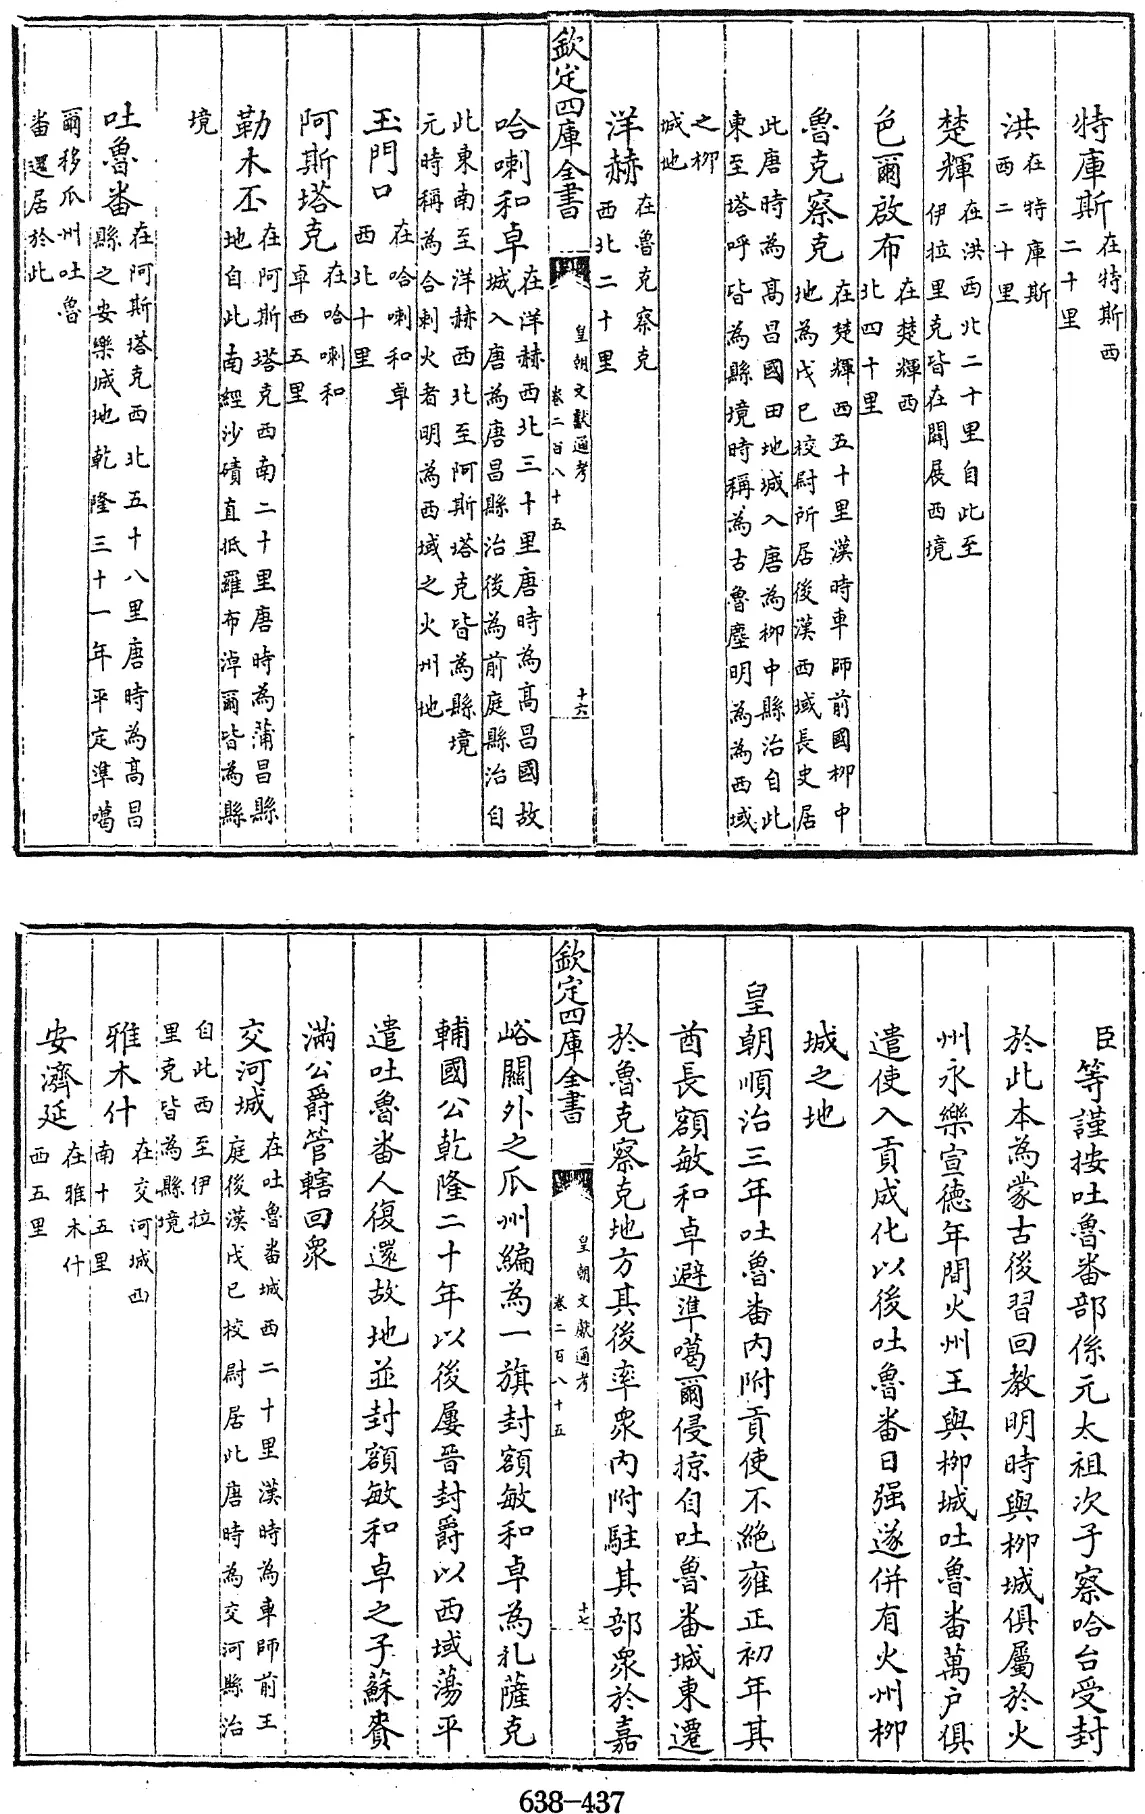 特庫斯在特斯西二十里
洪在特庫斯西二十里
楚輝在洪西北二十里自此至伊拉里克皆在闢展西境
色爾啟布在楚輝西北四十里
魯克察克在楚輝西五十里漢時車師前國柳中地為戊己校尉所居後漢西域長史居
此唐時為髙昌國田地城入唐為柳中縣治自此東至塔呼皆為縣境時稱為古魯塵明為為西域
之柳城地
洋赫在魯克察克西北二十里
欽定四庫全書
皇朝文獻通考
卷二百八十五
十六
哈喇和卓在洋赫西北三十里唐時為髙昌國故城入唐為唐昌縣治後為前庭縣治自
此東南至洋赫西北至阿斯塔克皆為縣境元時稱為合剌火者明為西域之火州地
玉門口在哈喇和卓西北十里
阿斯塔克在哈喇和卓西五里
勒木丕在阿斯塔克西南二十里唐時為蒲昌縣地自此南經沙磧直抵羅布淖爾皆為縣
境
吐魯番在阿斯塔克西北五十八里唐時為髙昌縣之安樂城地乾隆三十一年平定準噶
爾移瓜州吐魯番還居於此
臣等謹按吐魯番部係元太祖次子察哈台受封
於此本為蒙古後習回教明時與柳城俱屬於火
州永樂宣德年間火州王與柳城吐魯番萬戶俱
遣使入貢成化以後吐魯番日强遂併有火州柳
城之地
皇朝順治三年吐魯番內附貢使不絶雍正初年其
酋長額敏和卓避準噶爾侵掠自吐魯番城東遷
於魯克察克地方其後率衆內附駐其部衆於嘉
欽定四庫全書
皇朝文獻通考
卷二百八十五
十七
峪關外之瓜州編為一旗封額敏和卓為札薩克
輔國公乾隆二十年以後屢晉封爵以西域蕩平
遣吐魯番人復還故地並封額敏和卓之子蘇賚
滿公爵管轄回衆
交河城在吐魯番城西二十里漢時為車師前王庭後漢戊己校尉居此唐時為交河縣治
自此西至伊拉里克皆為縣境
雅木什在交河城西南十五里
安濟延在雅木什西五里
638-437